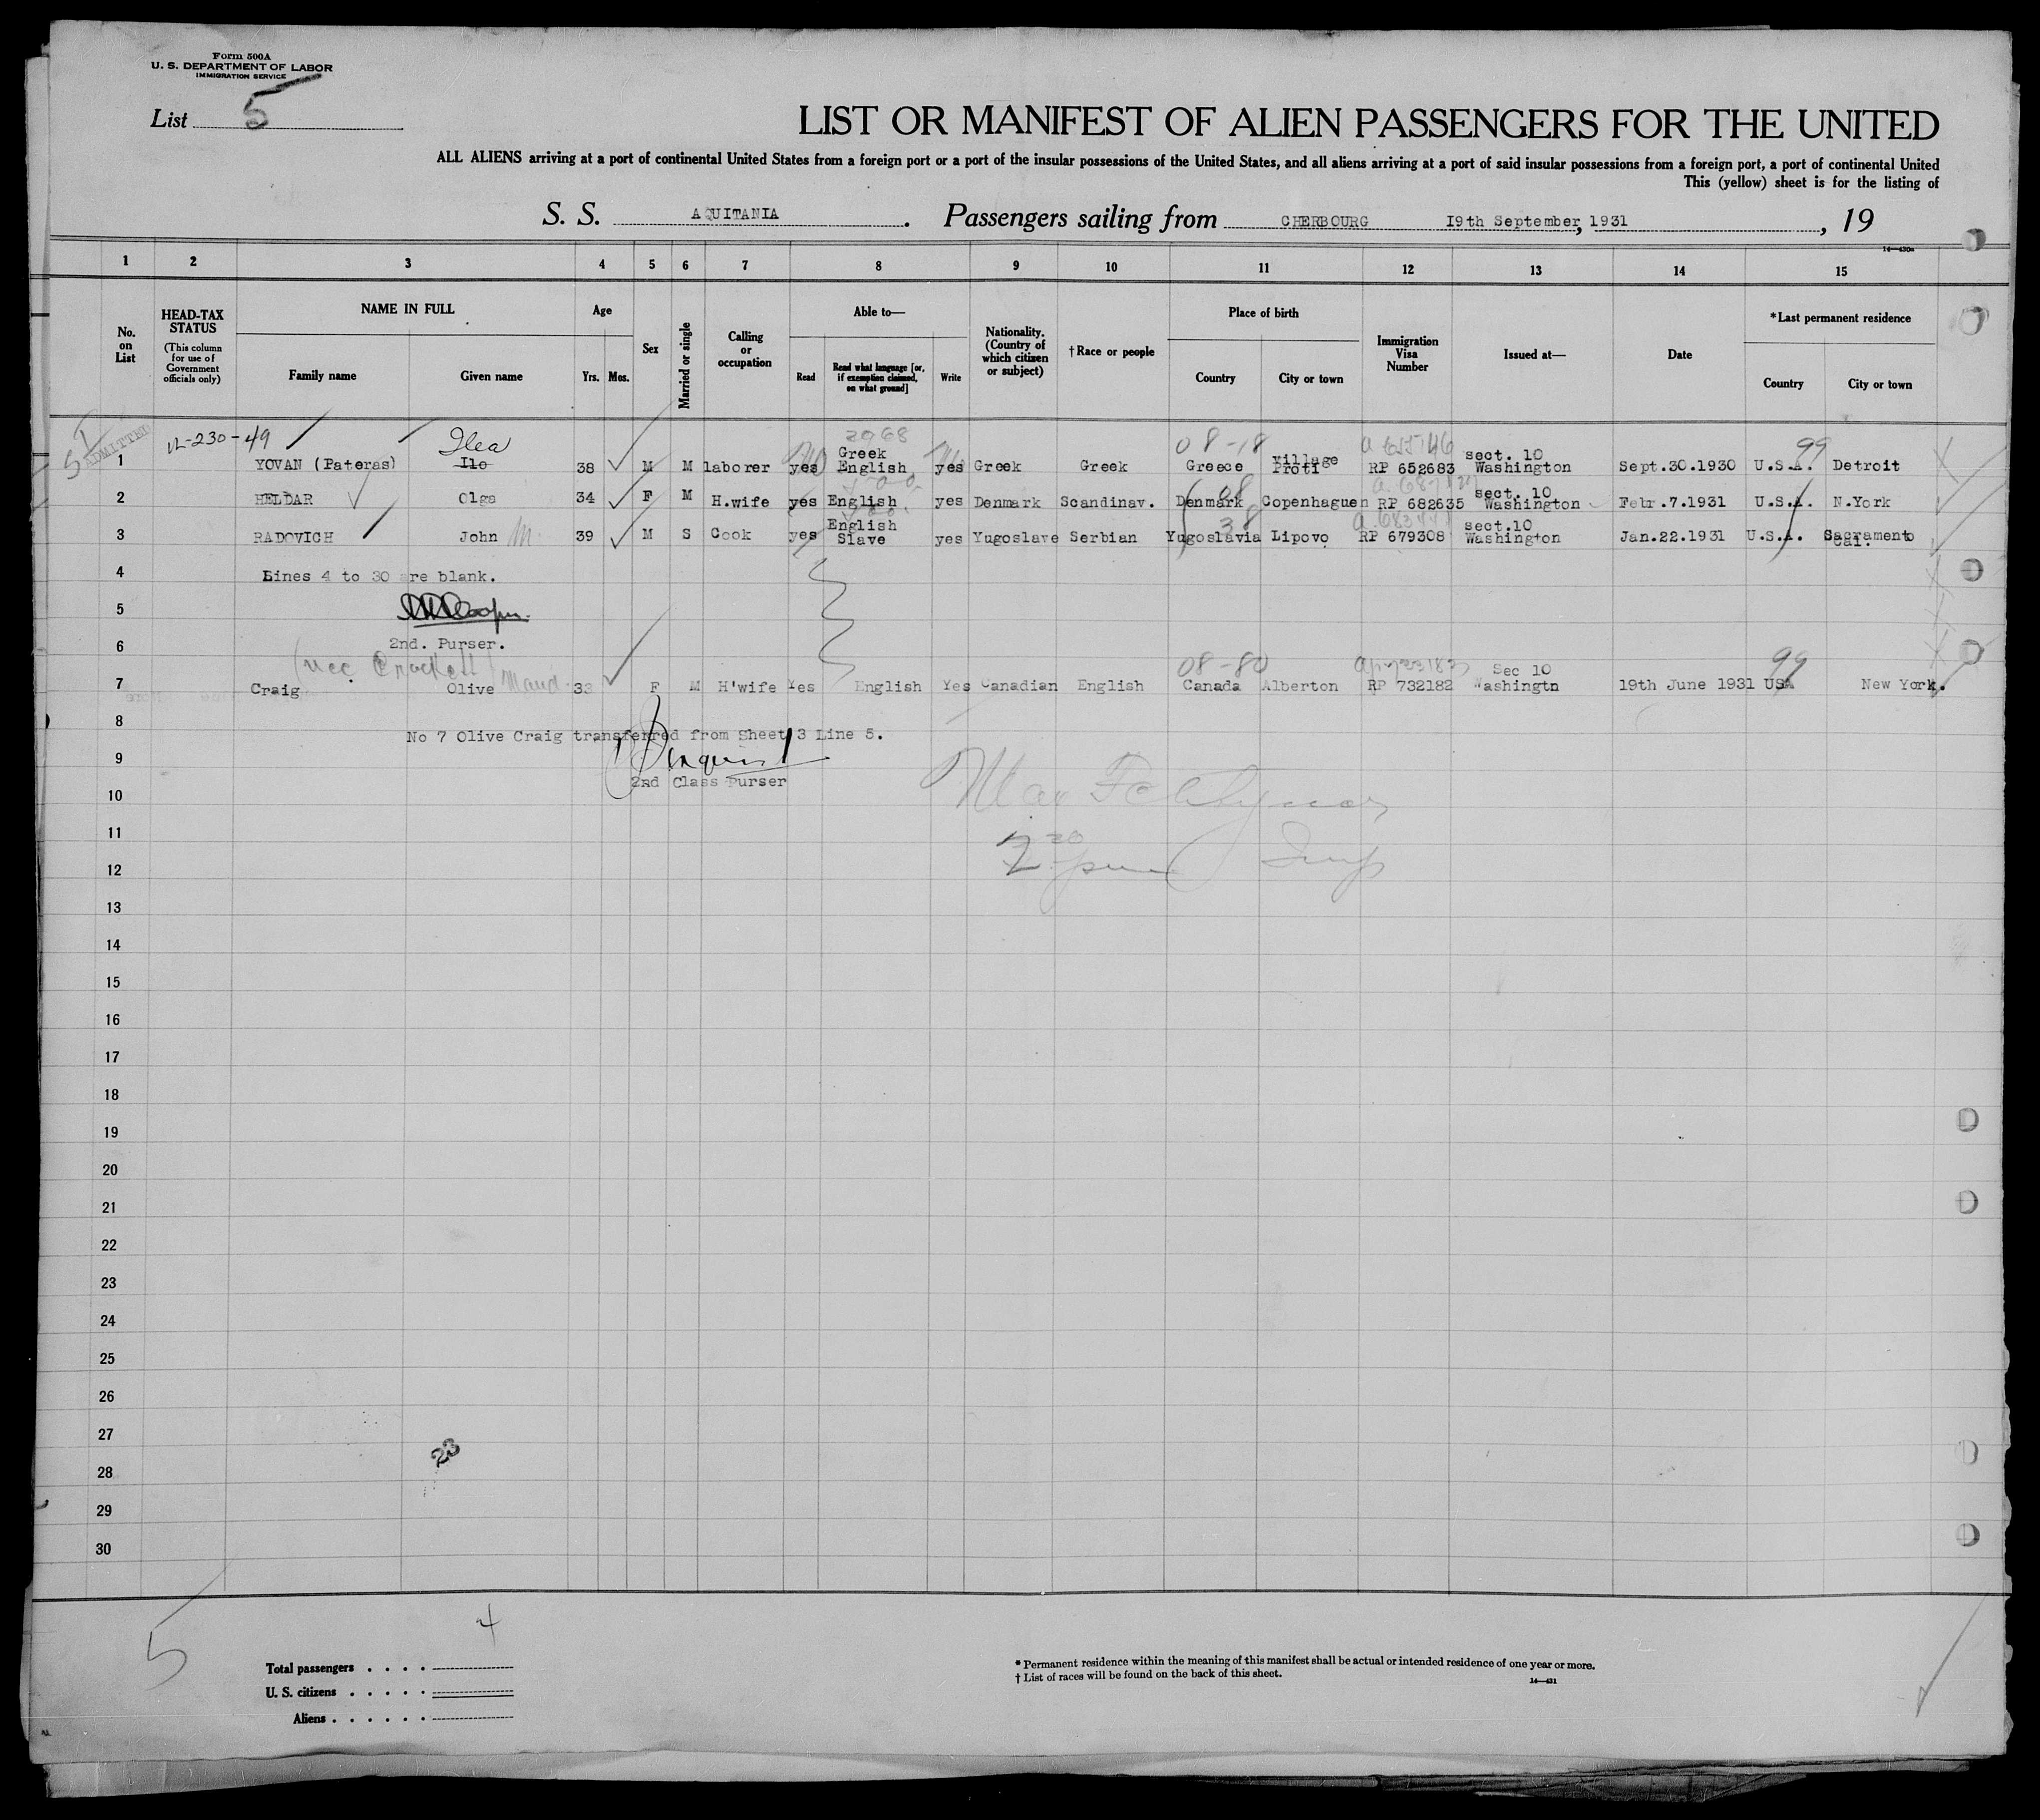 Form 500A
U. S. DEPARTMENT OF LABOR
IMMIGRATION SERVICE
List 5
LIST OR MANIFEST OF ALIEN PASSENGERS FOR THE UNITED
ALL ALIENS arriving at a port of continental United States from a foreign port or a port of the insular possessions of the United States, and all aliens arriving at a port of said insular possessions from a foreign port, a port of continental United
This (yellow) sheet is for the listing of
S. S. AQUITANIA. Passengers sailing from CHERBOURG 19th September, 1931, 19
14—430a
1 2 3 4 5 6 7 8 9 10 11 12 13 14 15
No. on List
HEAD-TAX STATUS
(This column for use of Government officials only)
NAME IN FULL
Family name Given name
Age
Yrs. Mos.
Sex
Married or single
Calling or occupation
Able to—
Read Read what language [or, if exemption claimed, on what ground] Write
Nationality. (Country of which citizen or subject)
†Race or people
Place of birth
Country City or town
Immigration Visa Number
Issued at—
Date
*Last permanent residence
Country City or town
ADMITTED
12-230-49 Ilea 2968 08-18 99
1 YOVAN (Pateras) Ilo 38 M M laborer yes Greek English yes Greek Greek Greece village Proti RP 652683 sect. 10 Washington Sept.30.1930 U.S.A. Detroit
2 HELDAR Olga 34 F M H.wife yes English yes Denmark Scandinav. Denmark Copenhaguen RP 682635 sect. 10 Washington Febr.7.1931 U.S.A. N.York
3 RADOVICH John M. 39 M S Cook yes English Slave yes Yugoslave Serbian Yugoslavia Lipovo RP 679308 sect.10 Washington Jan.22.1931 U.S.A. Sacramento Cal.
4 Lines 4 to 30 are blank.
5
6 2nd. Purser.
(nee Crockett) Maud 08-80 99
7 Craig Olive 33 F M H'wife Yes English Yes Canadian English Canada Alberton RP 732182 Sec 10 Washingtn 19th June 1931 USA New York.
8 No 7 Olive Craig transferred from Sheet 3 Line 5.
9
2nd Class Purser
10
11
12
13
14
15
16
17
18
19
20
21
22
23
24
25
26
27
23
28
29
30
5
4
Total passengers . . . .
U. S. citizens . . . . .
Aliens . . . . . .
* Permanent residence within the meaning of this manifest shall be actual or intended residence of one year or more.
† List of races will be found on the back of this sheet.
14—431